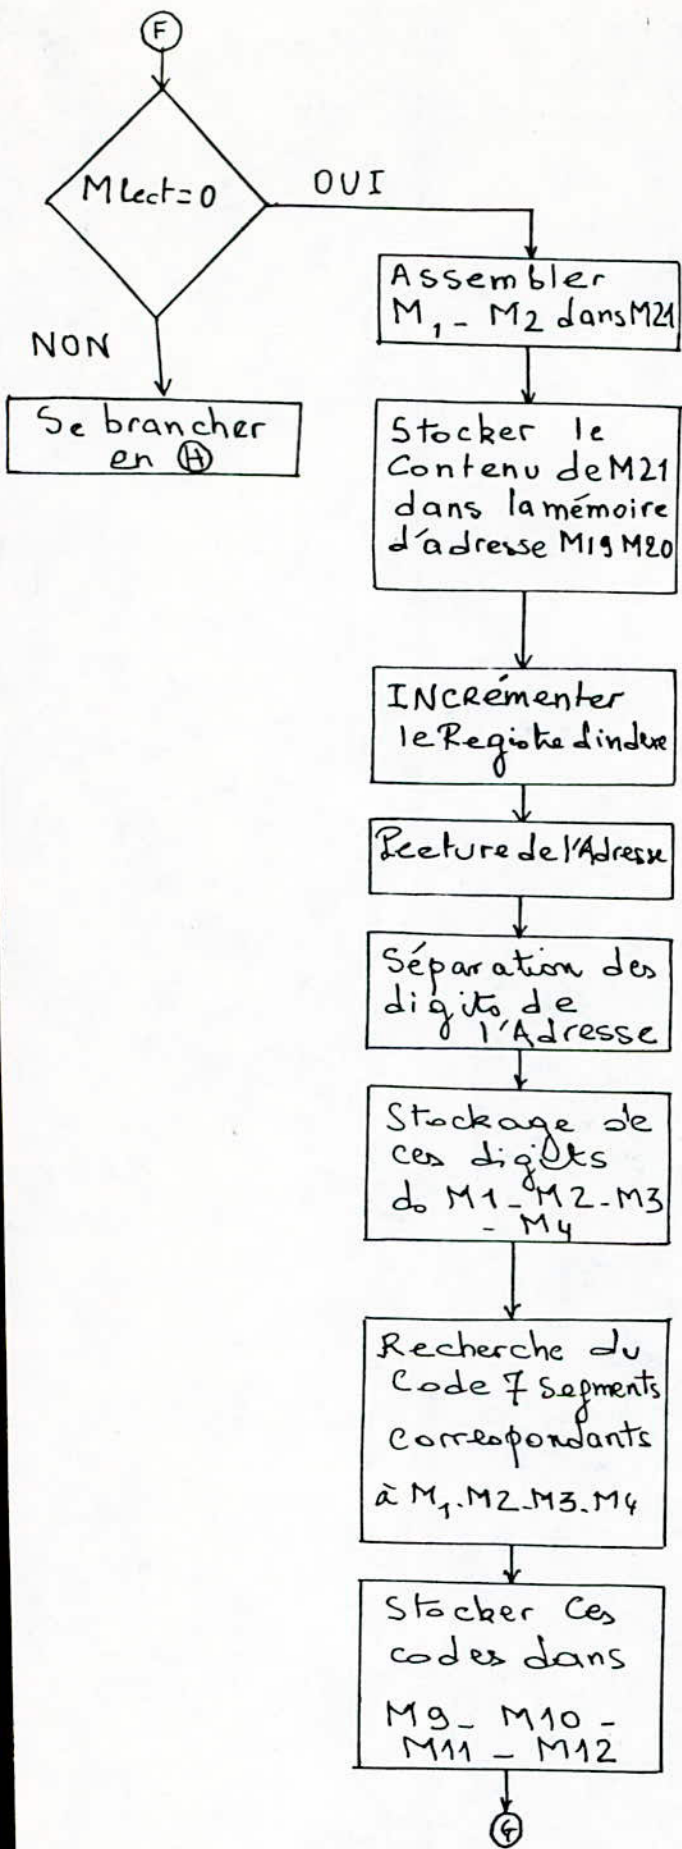 F
M lect=0
OUI
Assembler
M1 - M2 dans M21
NON
Se brancher
en H
Stocker le
Contenu de M21
dans la mémoire
d'adresse M19 M20
INCRémenter
le Registre d'indexe
Lecture de l'Adresse
Séparation des
digits de
l'Adresse
Stockage de
ces digits
ds M1 - M2 - M3
- M4
Recherche du
Code 7 Segments
correspondants
à M1.M2-M3.M4
Stocker Ces
codes dans
M9 - M10 -
M11 - M12
G